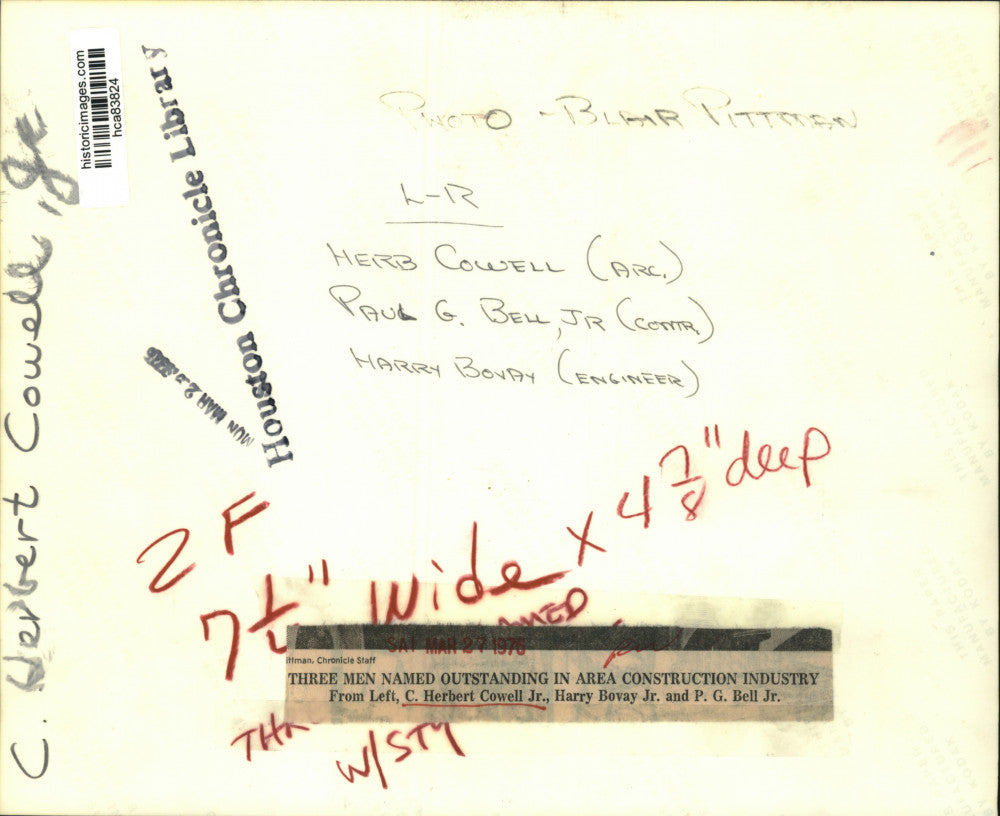 historicimages.com
hca83824
Houston Chronicle Library
C. Herbert Cowell, Jr.
PHOTO - BLAIR PITTMAN
L-R
HERB COWELL (ARC.)
PAUL G. BELL, JR (CONTR.)
HARRY BOVAY (ENGINEER)
MON MAR 2
2 F
7 1/2" Wide x 4 7/8" deep
SAT MAR 27 1976
ittman, Chronicle Staff
THREE MEN NAMED OUTSTANDING IN AREA CONSTRUCTION INDUSTRY
From Left, C. Herbert Cowell Jr., Harry Bovay Jr. and P. G. Bell Jr.
THR
W/STY